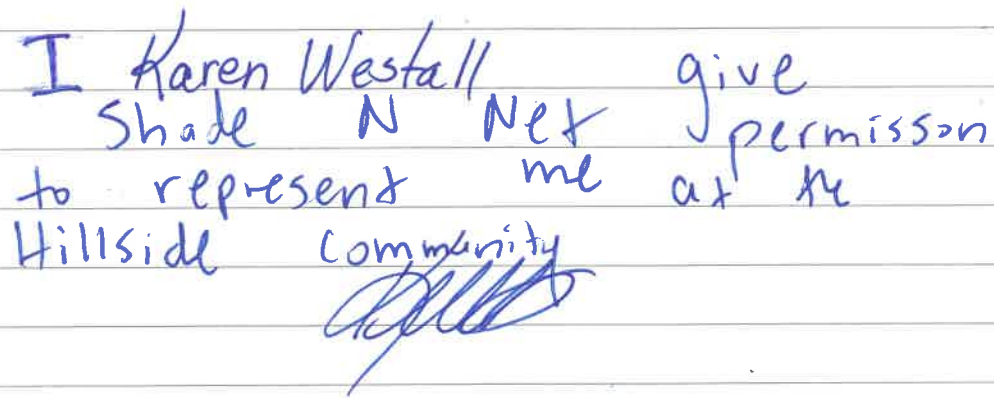 I Karen Westall give
Shade N Net permisson
to represent me at the
Hillside Community